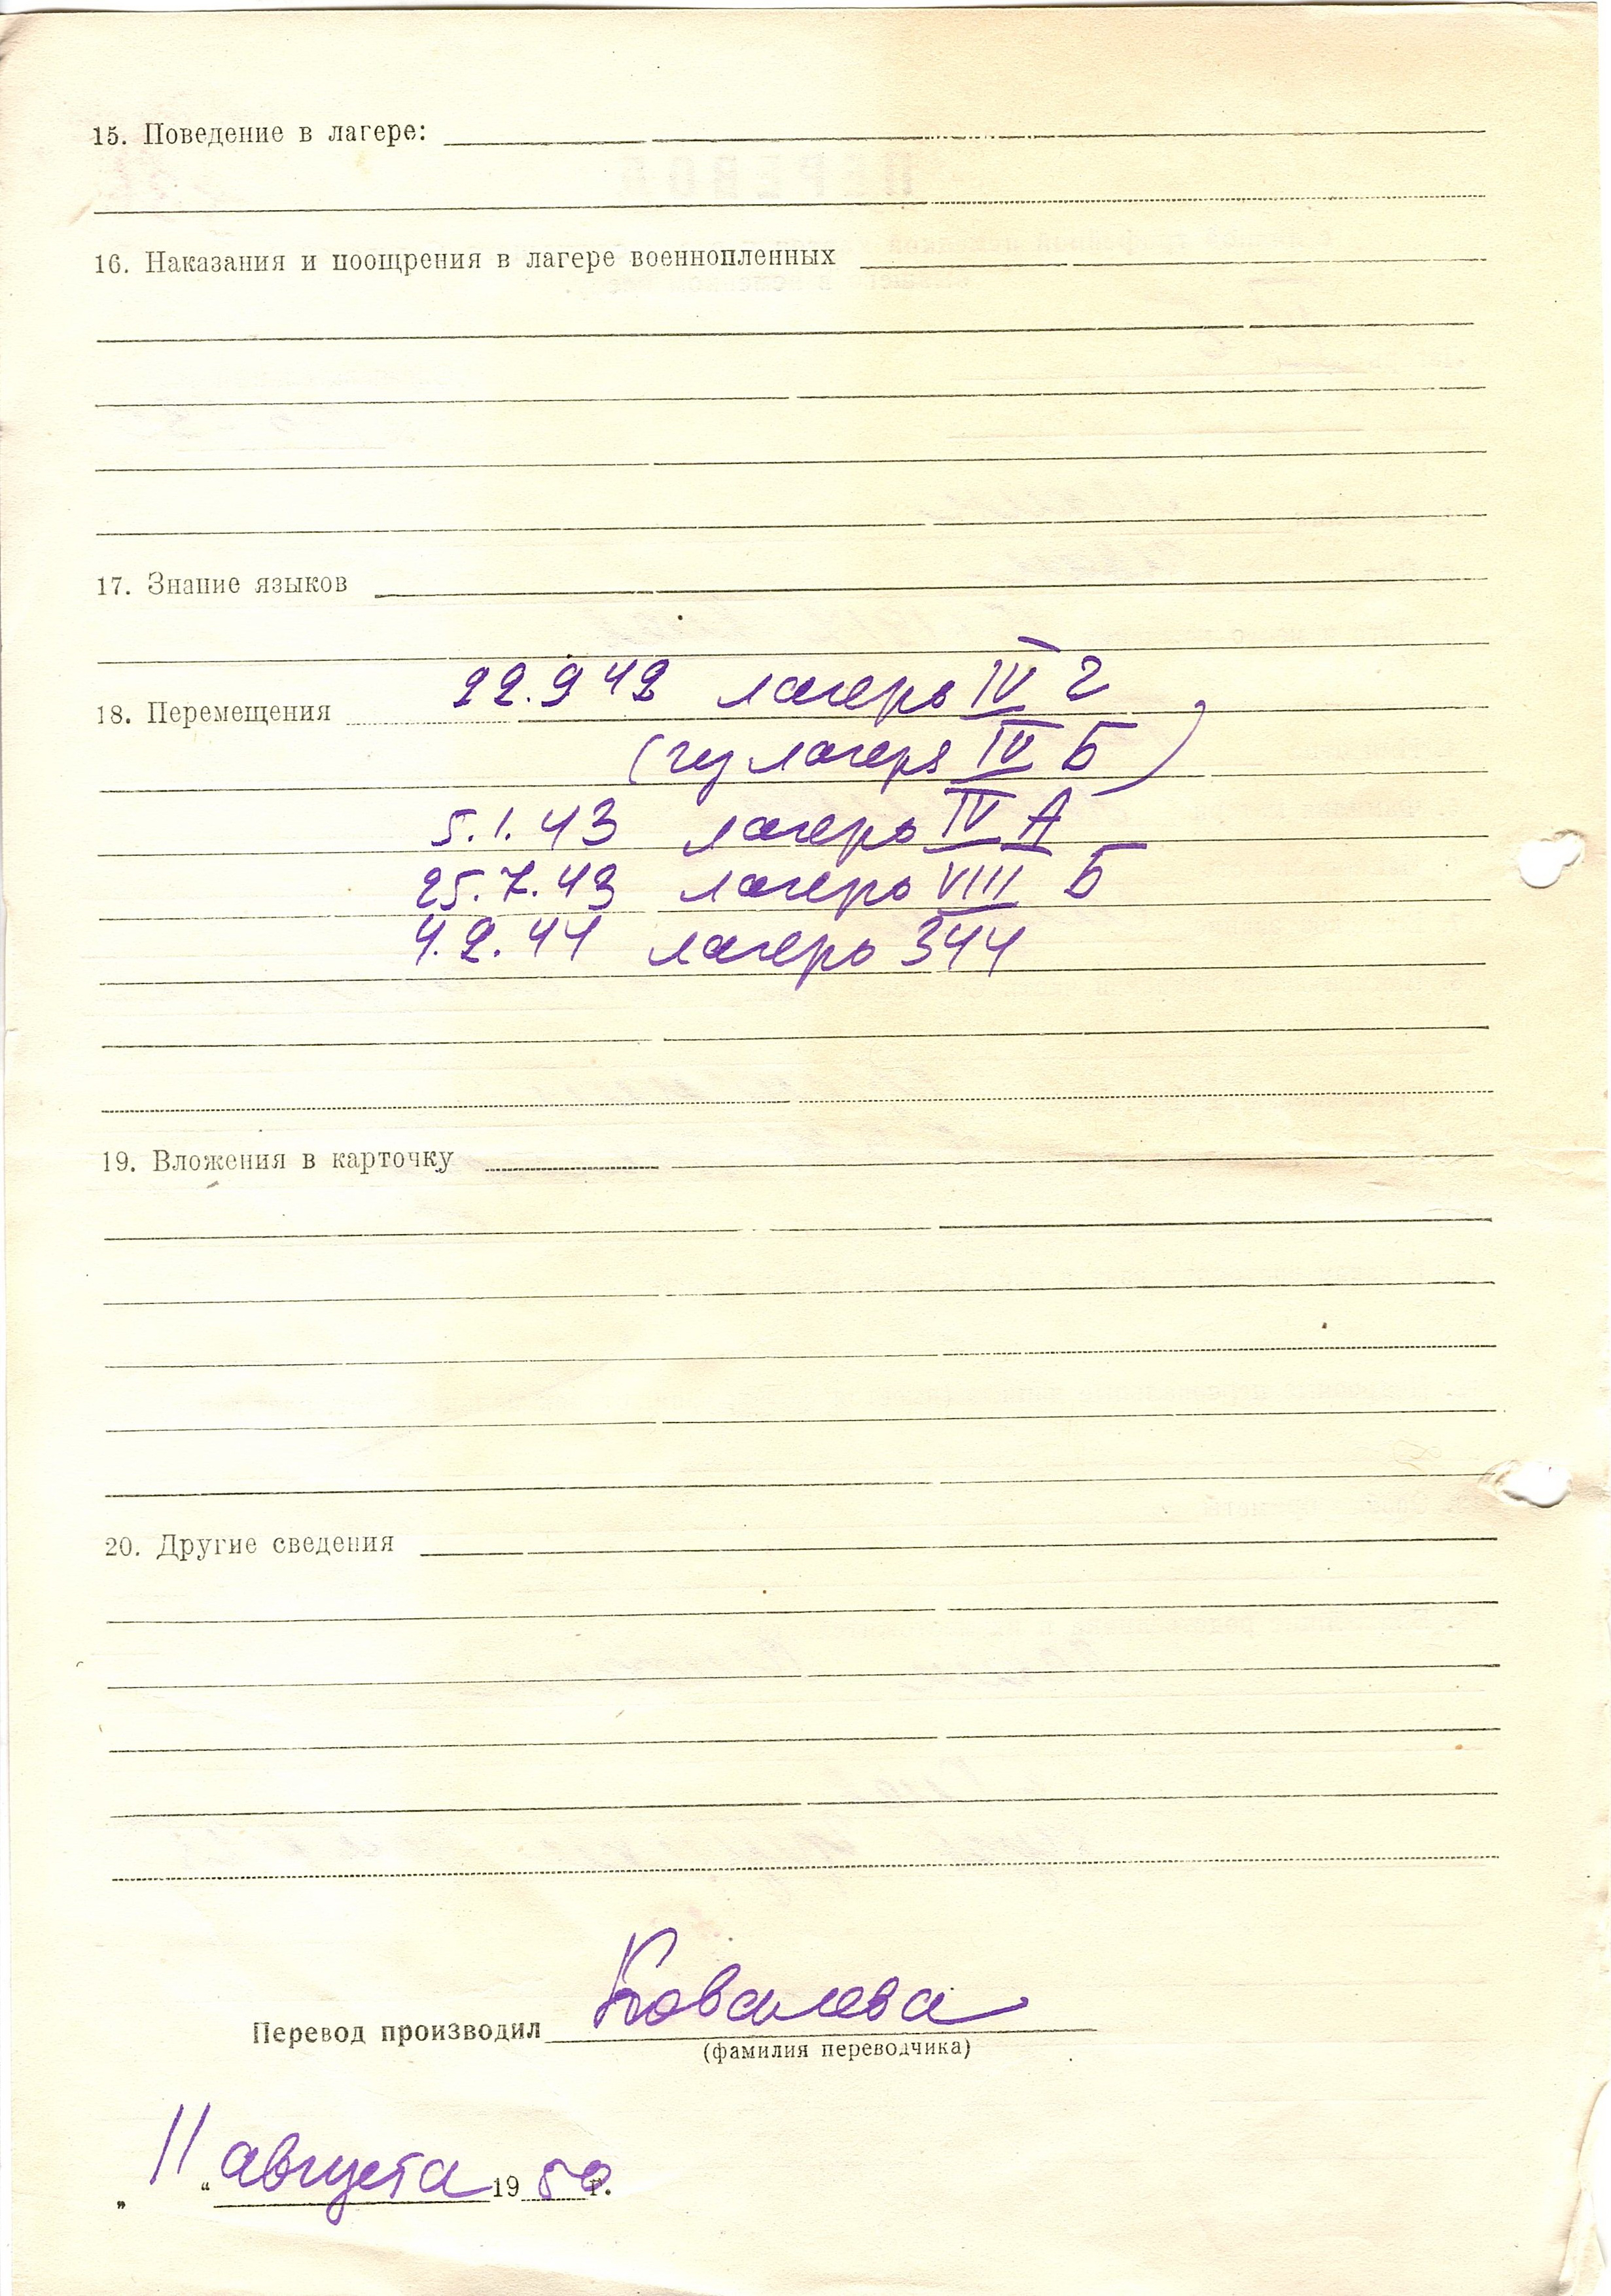 15. Поведение в лагере:
16. Наказания и поощрения в лагере военнопленных
17. Знание языков
18. Перемещения 22.9 42 лагерь IV г
(из лагеря IV Б)
5.1.43 лагерь IV А
25.7.43 лагерь VIII Б
4.2.44 лагерь 344
19. Вложения в карточку
20. Другие сведения
Перевод производил Ковалева
(фамилия переводчика)
„11“ августа 1950 г.